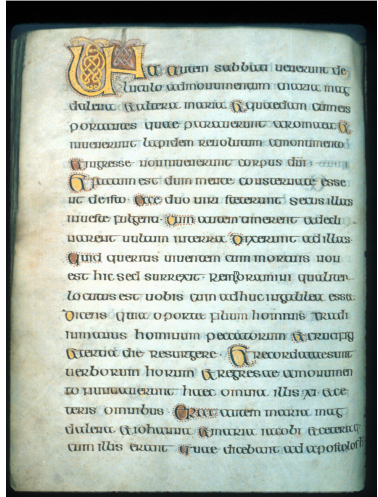 Una autem sabbati uenerunt de
luculo admonumentum maria mag
dalena & altera maria & quaedam cum eis
portantes quae parauerunt aromata &
inuenerunt lapidem reuolutum amonumento
& ingresse noninuenerunt corpus dni
& factum est dum mente consternate esse
nt deisto Ecce duo uiri steterunt secus illas
inueste fulgenti Cum autem timerent &decli
narent uultum interra Dixerunt adillas
Quid queritis uiuentem cum mortuis non
est hic sed surrexit qualiter
locutus est uobis cum adhuc ingalilea esse
Dicens Quia oportet filium hominis tradi
inmanus hominum peccatorum & crucifigi
& tertia die resurgere & recordatesunt
uerborum horum & regresse amonumen
to nuntiauerunt haec omnia illis xi &ce
teris omnibus Erat autem maria mag
dalena & iohanna & maria iacobi & cetere
cum illis erant quae dicebant ad apostolos h